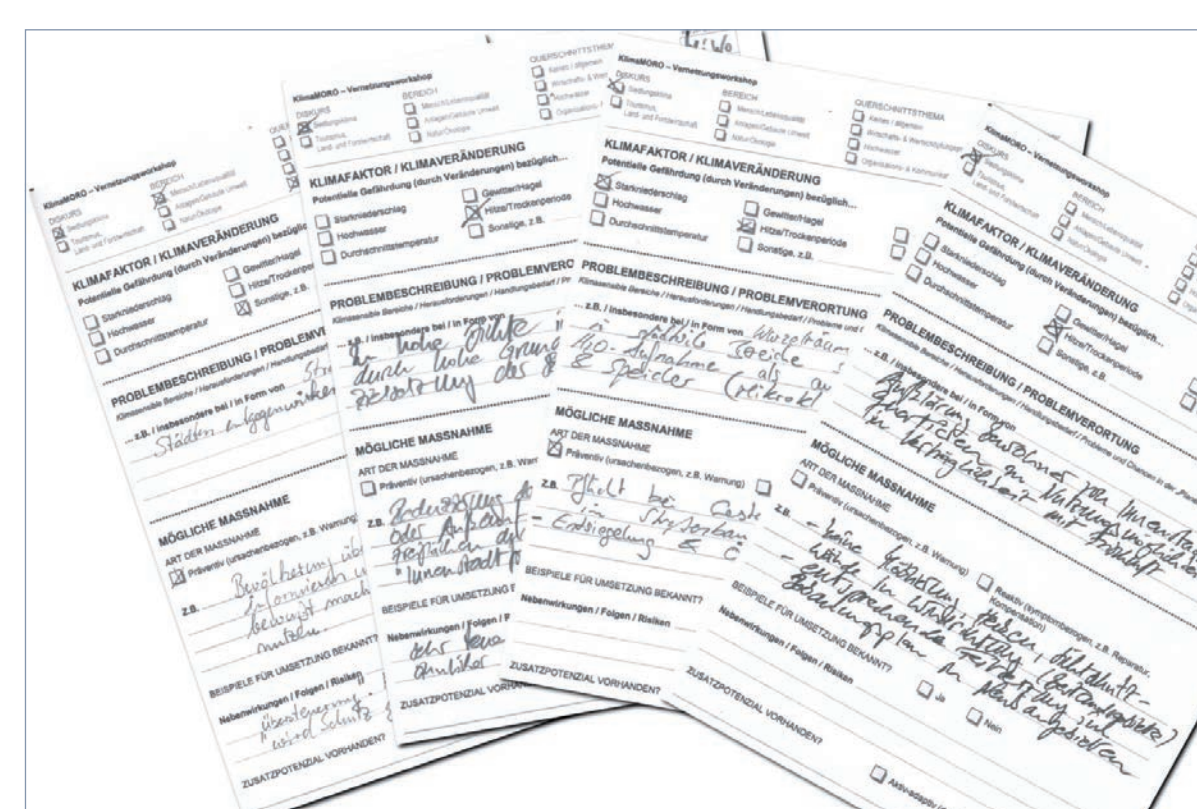 KlimaMORO – Vernetzungsworkshop
DISKURS
Siedlungsklima
Tourismus,
Land- und Forstwirtschaft
BEREICH
Mensch/Lebensqualität
Anlagen/Gebäude Umwelt
Natur/Ökologie
KLIMAFAKTOR / KLIMAVERÄNDERUNG
Potentielle Gefährdung (durch Veränderungen) bezüglic
Starkniederschlag
Hochwasser
Durchschnittstemperatur
Gewitter/Hagel
Hitze/Trockenper
Sonstige, z.B.
PROBLEMBESCHREIBUNG / PROBLEMV
Klimasensible Bereiche / Herausforderungen / Handlungsbedarf
... z.B. / insbesondere bei / in Form von
Städten entgegenwirken
MÖGLICHE MASSNAHME
ART DER MASSNAHME
Präventiv (ursachenbezogen, z.B. Warnung
z.B. Bevölkerung üb
informieren u
bewußt mach
nutzen.
BEISPIELE FÜR UMSETZUNG BEKANNT?
Nebenwirkungen / Folgen / Risiken
wird Schutz
ZUSATZPOTENZIAL VORHANDEN?
KlimaMORO – Vernetzungsworkshop
DISKURS
Siedlungsklima
Tourismus,
Land- und Forstwirtschaft
BEREICH
Mensch/Lebensqualität
Anlagen/Gebäude Umwelt
Natur/Ökologie
QUERSCHNITTSTHEM
Keines / allgemein
Wirtschafts- & Wert
Hochwasser
Organisations-
KLIMAFAKTOR / KLIMAVERÄNDERUNG
Potentielle Gefährdung (durch Veränderungen) bezüglich...
Starkniederschlag
Hochwasser
Durchschnittstemperatur
Gewitter/Hagel
Hitze/Trockenperiode
Sonstige, z.B.
PROBLEMBESCHREIBUNG / PROBLEMVERO
Klimasensible Bereiche / Herausforderungen / Handlungsbedarf / Pr
... z.B. / insbesondere bei / in Form von
zu hohe Dichte
durch hohe Grun
des
MÖGLICHE MASSNAHME
ART DER MASSNAHME
Präventiv (ursachenbezogen, z.B. Warn
z.B.
oder Ankauf
Freiflächen
Innenstadt
BEISPIELE FÜR UMSETZUNG
Nebenwirkungen / Folgen / R
sehr teue
ZUSATZPOTENZIAL VORHAN
KlimaMORO – Vernetzungsworkshop
DISKURS
Siedlungsklima
Tourismus,
Land- und Forstwirtschaft
BEREICH
Mensch/Lebensqualität
Anlagen/Gebäude Umwelt
Natur/Ökologie
QUERSCHNITTSTHEMA
Keines / allgemein
Wirtschafts- & Wertschöpfungsket
Hochwasser
Organisations- & Kommunikat
KLIMAFAKTOR / KLIMAVERÄNDERUNG
Potentielle Gefährdung (durch Veränderungen) bezüglich...
Starkniederschlag
Hochwasser
Durchschnittstemperatur
Gewitter/Hagel
Hitze/Trockenperiode
Sonstige, z.B.
PROBLEMBESCHREIBUNG / PROBLEMVERORTU
Klimasensible Bereiche / Herausforderungen / Handlungsbedarf / Probleme und
... z.B. / insbesondere bei / in Form von Wurzelräum
H₂O-Aufnahme als
& Speicher (Mikrokl
MÖGLICHE MASSNAHME
ART DER MASSNAHME
Präventiv (ursachenbezogen, z.B. Warnung)
z.B.
- Entsiegelung &
BEISPIELE FÜR UMSETZUNG BEKANNT?
Nebenwirkungen / Folgen / Risiken
ZUSATZPOTENZIAL VORHANDEN?
KlimaMORO – Vernetzungsworkshop
DISKURS
Siedlungsklima
Tourismus,
Land- und Forstwirtschaft
BEREICH
Mensch/Lebensqualität
Anlagen/Gebäude Umwelt
Natur/Ökologie
KLIMAFAKTOR / KLIMAVERÄNDERUNG
Potentielle Gefährdung (durch Veränderungen) bezüglich...
Starkniederschlag
Hochwasser
Durchschnittstemperatur
Gewitter/Hagel
Hitze/Trockenperiode
Sonstige, z.B.
PROBLEMBESCHREIBUNG / PROBLEMVERORTUNG
Klimasensible Bereiche / Herausforderungen / Handlungsbedarf / Probleme und Chancen in der
... z.B. / insbesondere bei / in Form von
Aufklärung Bewohner von
quartieren zu Nutzungsmöglichkei
in Verträglichkeit mit
MÖGLICHE MASSNAHME
ART DER MASSNAHME
Präventiv (ursachenbezogen, z.B. Warnung)
Reaktiv (symptombezogen, z.B. Reparatur,
Kompensation)
z.B. - keine Hecken, Sichtschutz-
wände in Windrichtung (Bestandsgebiete)
- entsprechende Festsetzung im
Bebauungsplan in Neubaugebieten
BEISPIELE FÜR UMSETZUNG BEKANNT?
Ja
Nein
Nebenwirkungen / Folgen / Risiken
ZUSATZPOTENZIAL VORHANDEN?